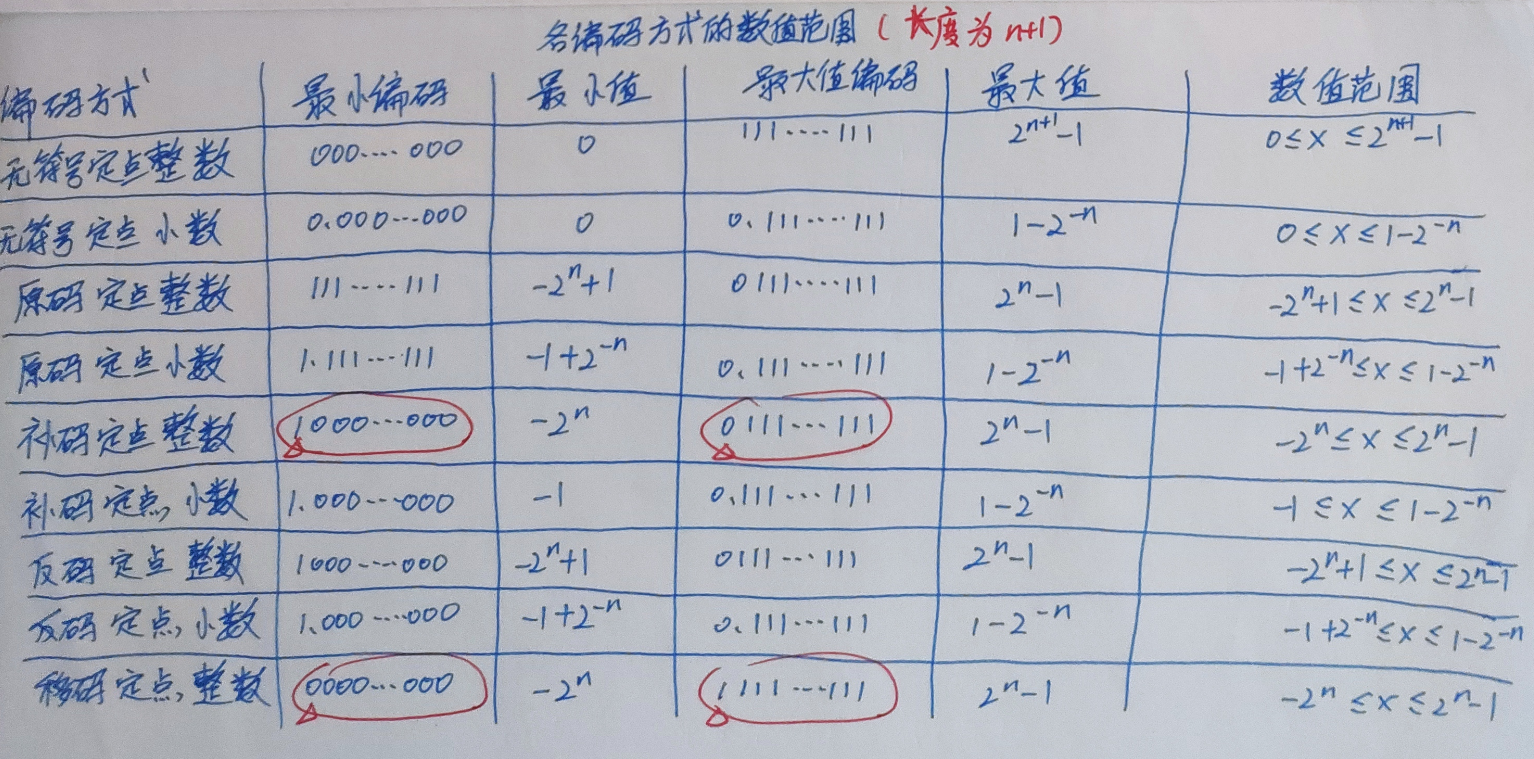 各编码方式的数值范围（长度为n+1）
编码方式 最小编码 最小值 最大值编码 最大值 数值范围
无符号定点整数 000....000 0 111....111 2^{n+1}-1 0≤x≤2^{n+1}-1
无符号定点小数 0.000...000 0 0.111....111 1-2^{-n} 0≤x≤1-2^{-n}
原码定点整数 111....111 -2^n+1 0111....111 2^n-1 -2^n+1≤x≤2^n-1
原码定点小数 1.111...111 -1+2^{-n} 0.111....111 1-2^{-n} -1+2^{-n}≤x≤1-2^{-n}
补码定点整数 1000...000 -2^n 0111...111 2^n-1 -2^n≤x≤2^n-1
补码定点小数 1.000...000 -1 0.111...111 1-2^{-n} -1≤x≤1-2^{-n}
反码定点整数 1000...000 -2^n+1 0111...111 2^n-1 -2^n+1≤x≤2^n-1
反码定点小数 1.000....000 -1+2^{-n} 0.111...111 1-2^{-n} -1+2^{-n}≤x≤1-2^{-n}
移码定点整数 0000...000 -2^n 1111...111 2^n-1 -2^n≤x≤2^n-1